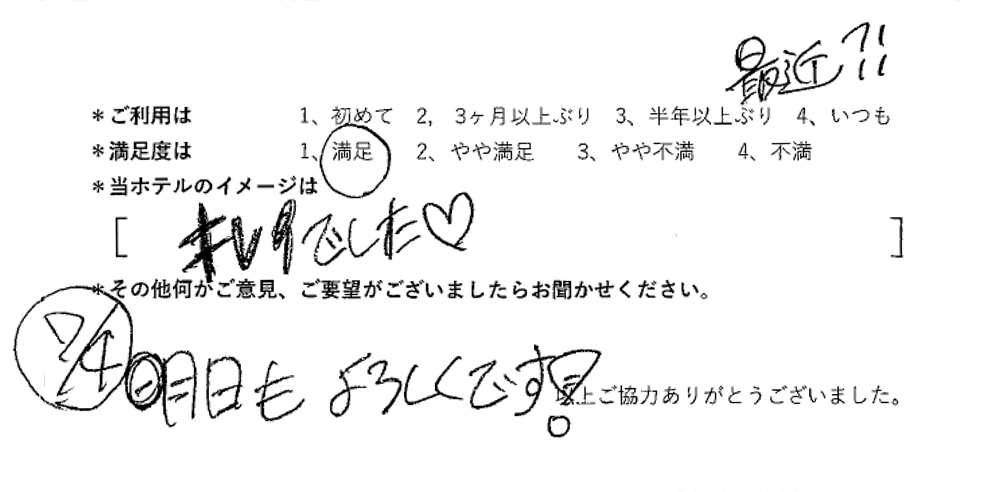 最近?!!
＊ご利用は 1、初めて 2, 3ヶ月以上ぶり 3、半年以上ぶり 4、いつも
＊満足度は 1、満足 2、やや満足 3、やや不満 4、不満
＊当ホテルのイメージは
[キレイでした♡]
＊その他何かご意見、ご要望がございましたらお聞かせください。
7/4 明日もよろしくです!
以上ご協力ありがとうございました。